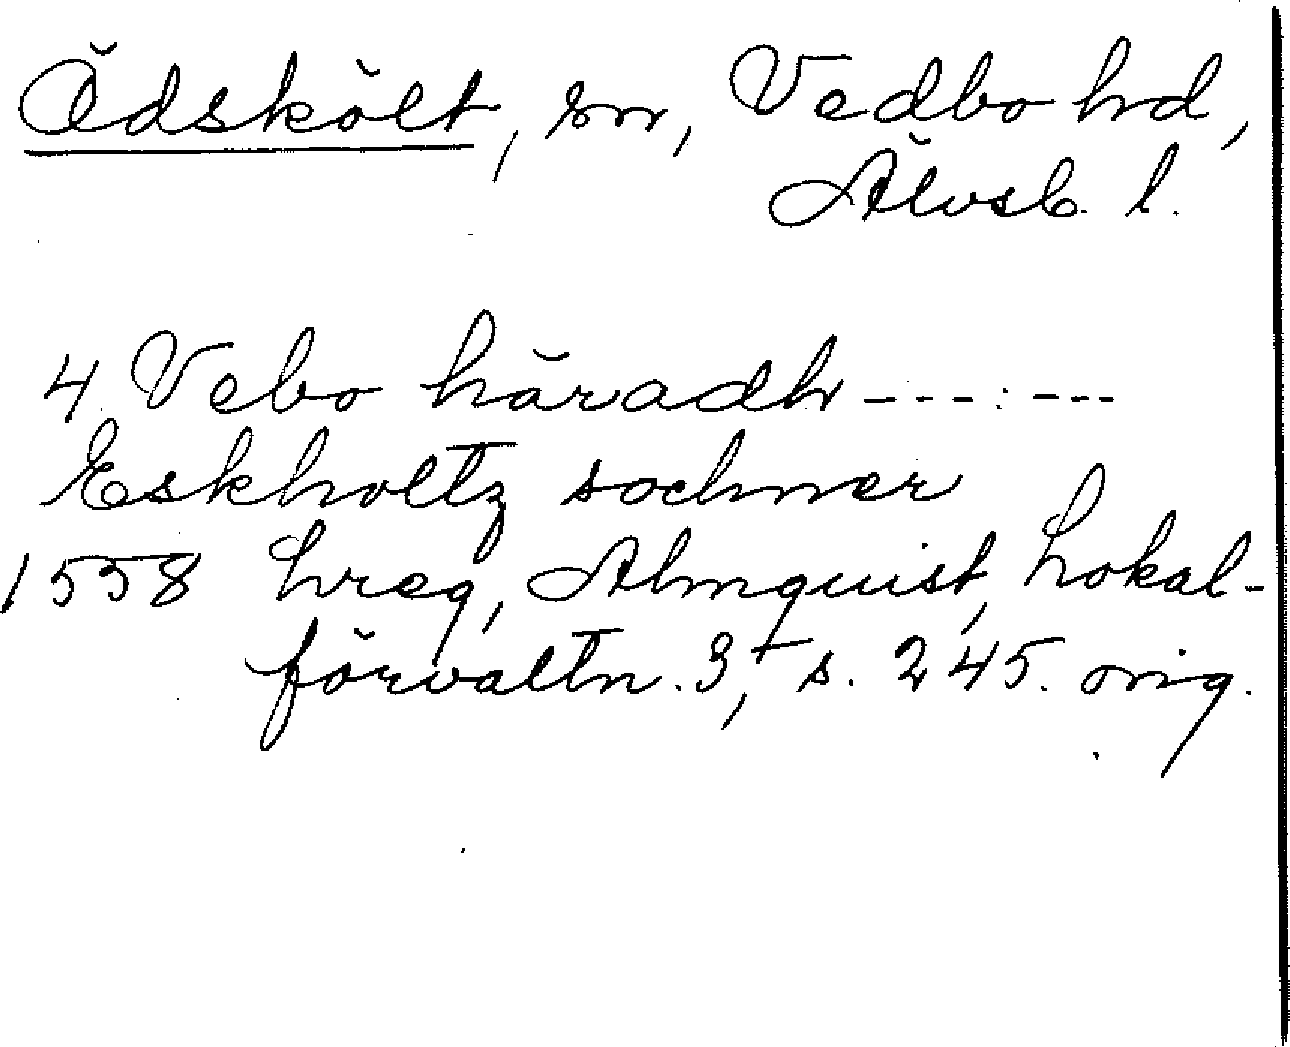 Ödskölt, sn, Vedbo hd,
Älvsb. l.
4 Vebo häradh ---:---
Eskholtz sochner
1558 hreg, Almquist, Lokal-
förvaltn. 3, s. 245. orig.